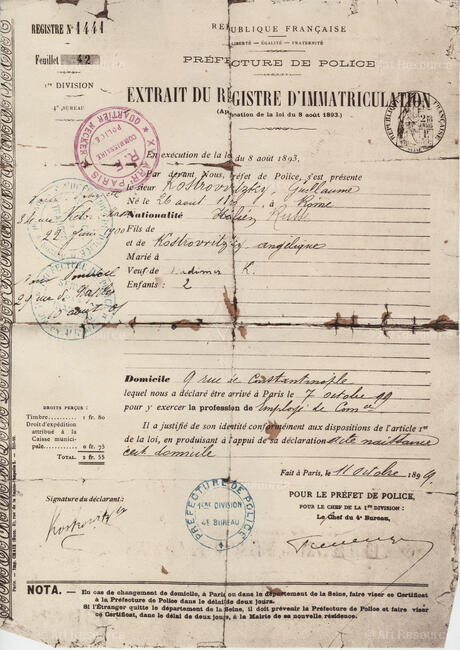 REGISTRE N° 1441
RÉPUBLIQUE FRANÇAISE
LIBERTÉ — ÉGALITÉ — FRATERNITÉ
Feuillet 42
PRÉFECTURE DE POLICE
1re DIVISION
4e BUREAU
EXTRAIT DU REGISTRE D'IMMATRICULATION
(Application de la loi du 8 août 1893.)
En exécution de la loi du 8 août 1893,
Par devant Nous, Préfet de Police, s'est présenté
le sieur Kostrovitzky Guillaume
Né le 26 août 1880 à Rome
Nationalité Italien Russe
22 Juin 1900
Fils de
et de Kostrovitzky Angélique
Marié à
Veuf de
Enfants: 2
Domicile 9 rue de Constantinople
lequel nous a déclaré être arrivé à Paris le 7 octobre 99
pour y exercer la profession de Employé de Comce
DROITS PERÇUS:
Timbre 1 fr. 80
Droit d'expédition attribué à la Caisse municipale 0 fr. 75
TOTAL: 2 fr. 55
Il a justifié de son identité conformément aux dispositions de l'article 1er
de la loi, en produisant à l'appui de sa déclaration acte naissance
cert domicile
Fait à Paris, le 11 octobre 1899.
Signature du déclarant:
POUR LE PRÉFET DE POLICE,
POUR LE CHEF DE LA 1re DIVISION:
Le Chef du 4e Bureau,
PRÉFECTURE DE POLICE
1ERE DIVISION
4E BUREAU
NOTA. — En cas de changement de domicile, à Paris ou dans le département de la Seine, faire viser ce Certificat
à la Préfecture de Police dans le délai de deux jours.
Si l'Étranger quitte le département de la Seine, il doit prévenir la Préfecture de Police et faire viser
ce Certificat, dans le délai de deux jours, à la Mairie de sa nouvelle résidence.